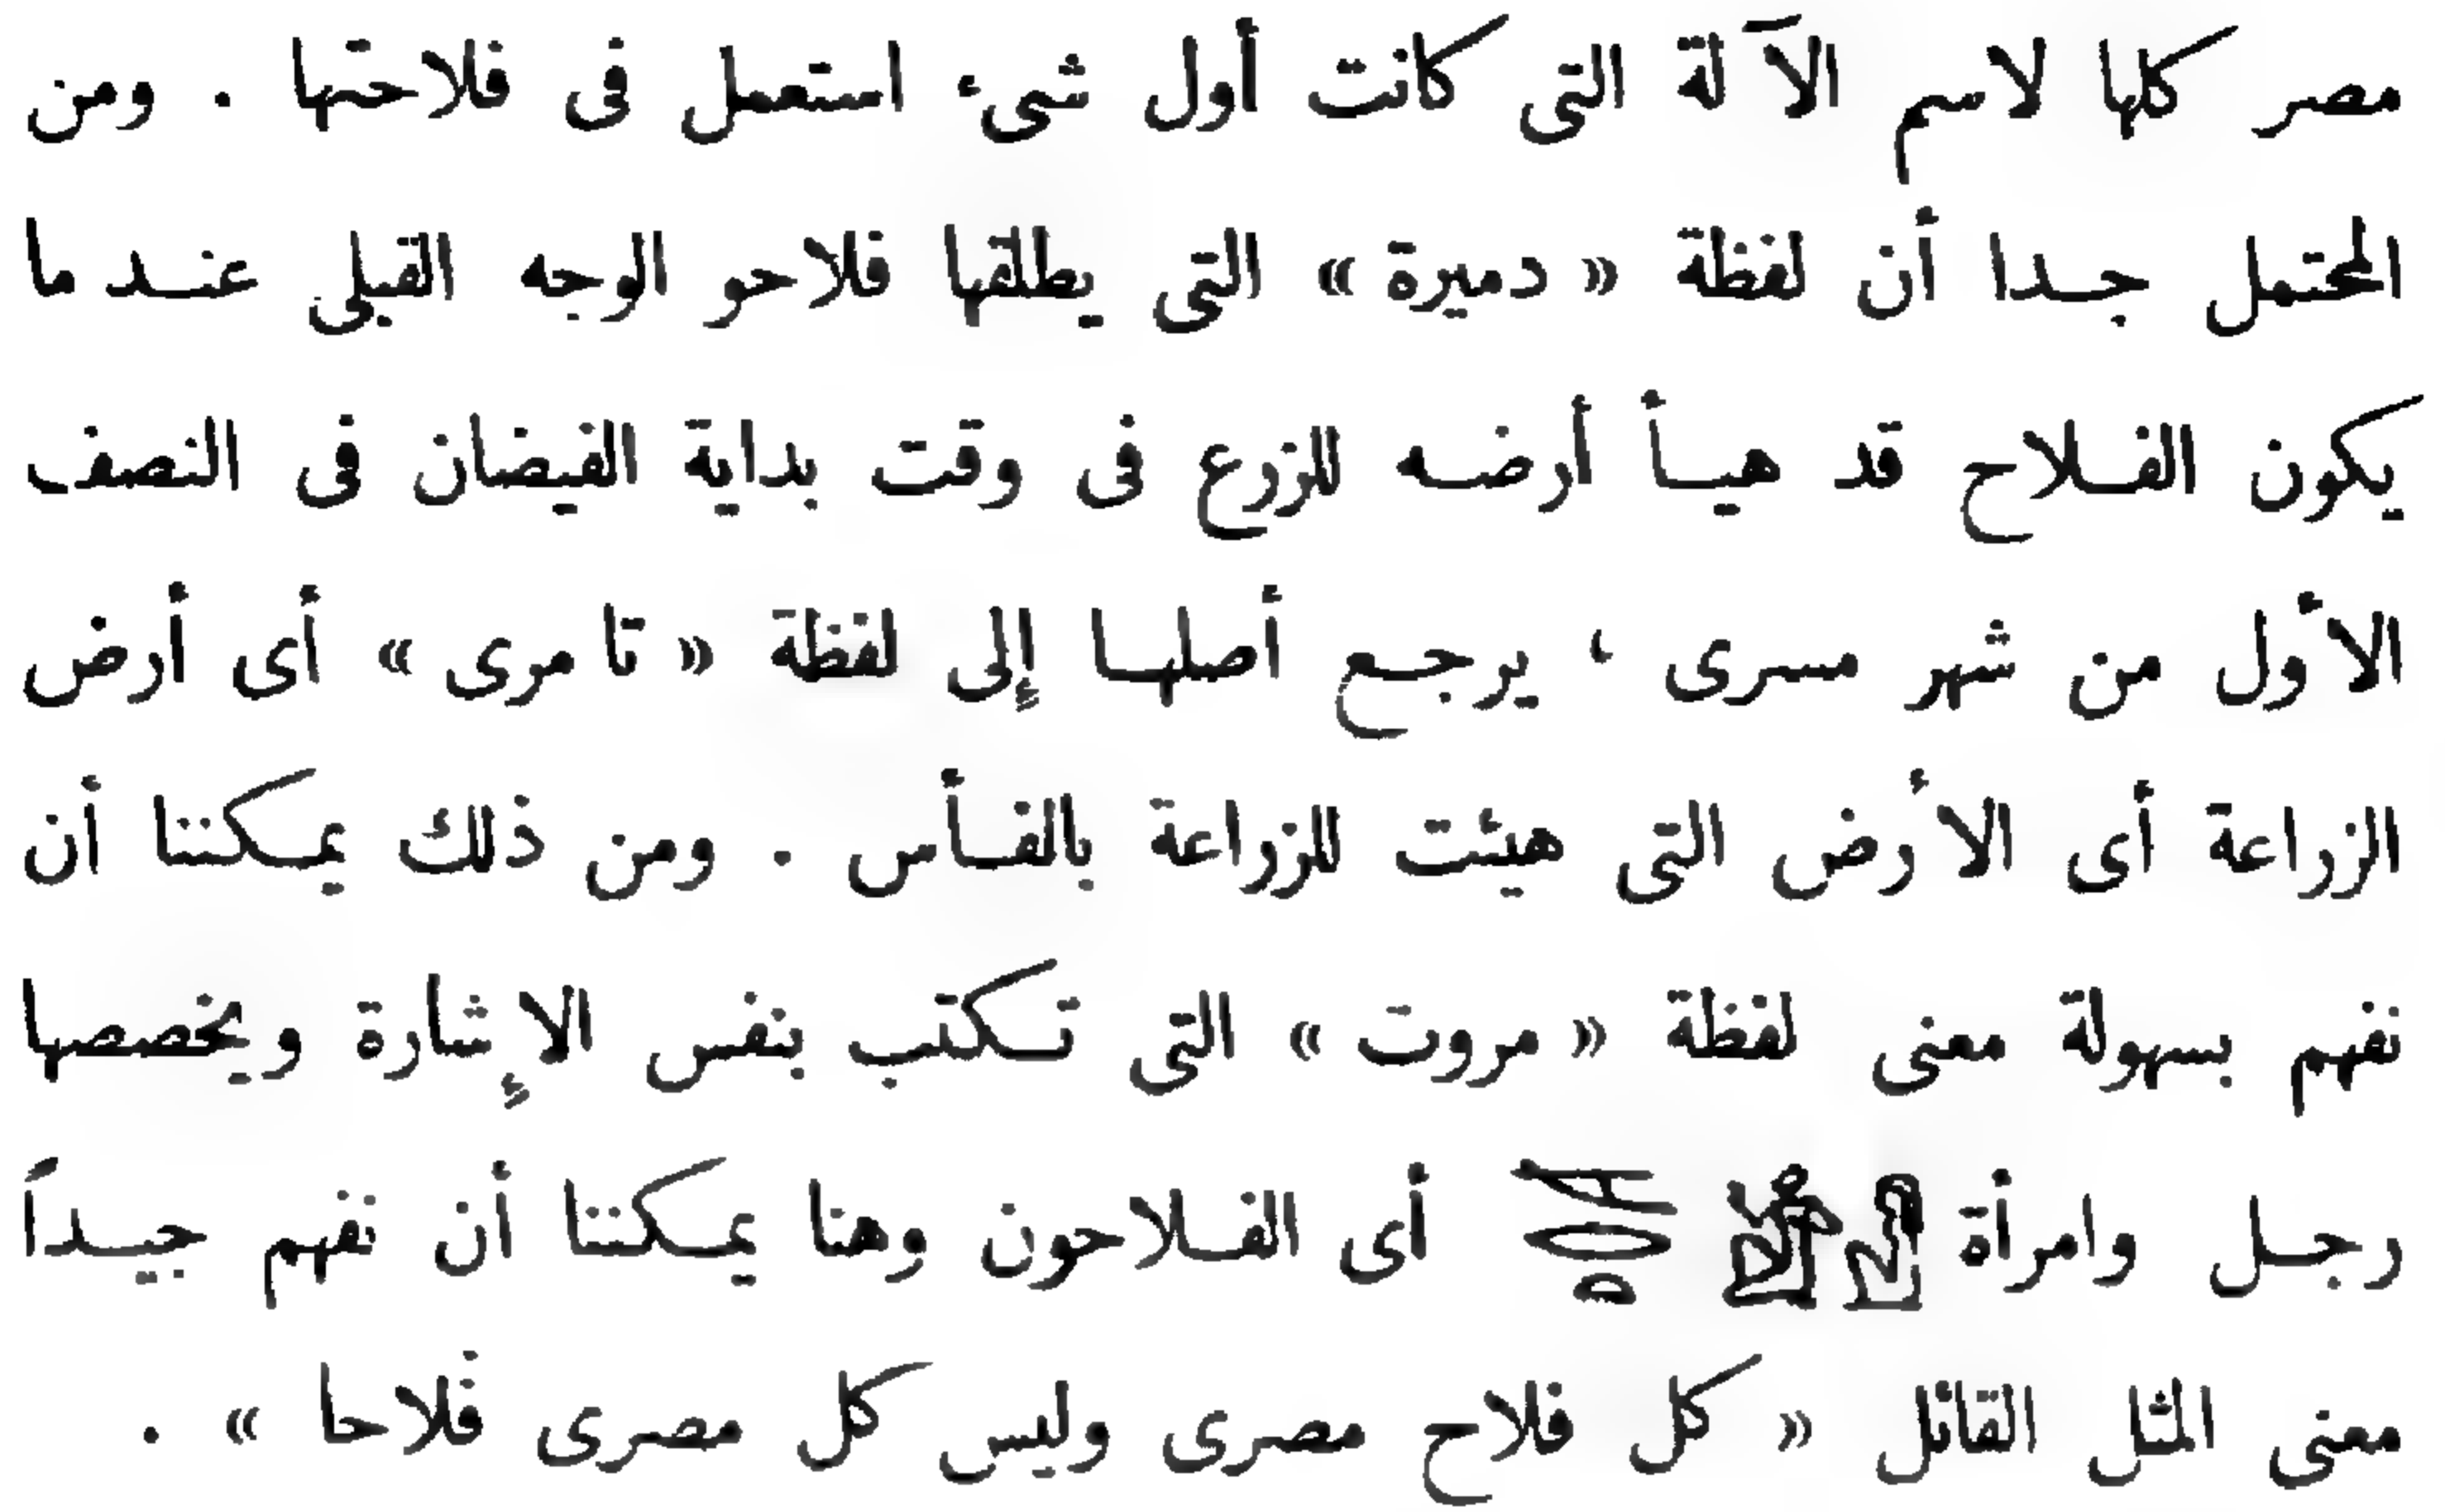 مصر كلها لاسم الآلة التى كانت أول شىء استعمل فى فلاحتها . ومن
المحتمل جدا أن لفظة « دميرة » التى يطلقها فلاحو الوجه القبلى عند ما
يكون الفلاح قد هيأ أرضه للزرع فى وقت بداية الفيضان فى النصف
الأول من شهر مسرى ، يرجع أصلها إلى لفظة « تا مرى » أى أرض
الزراعة أى الأرض التى هيئت للزراعة بالفأس . ومن ذلك يمكننا أن
نفهم بسهولة معنى لفظة « مروت » التى تكتب بنفس الإشارة ويخصصها
رجل وامرأة أى الفلاحون وهنا يمكننا أن نفهم جيداً
معنى المثل القائل « كل فلاح مصرى وليس كل مصرى فلاحا » .